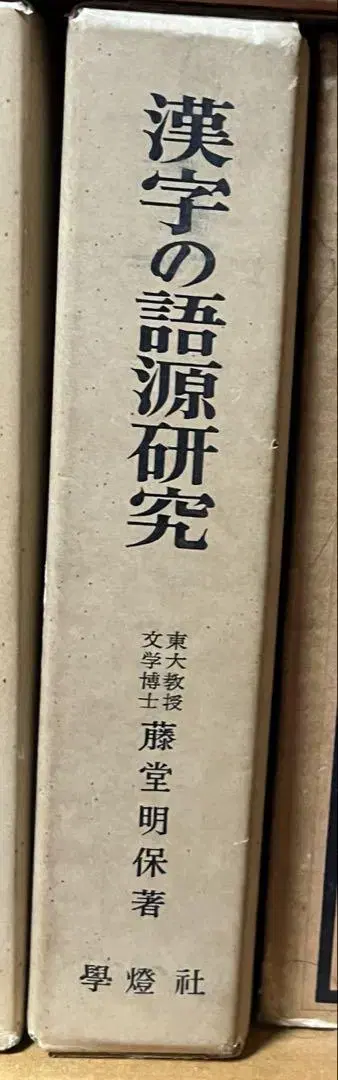 漢字の語源研究
東大教授
文学博士
藤堂明保著
學燈社